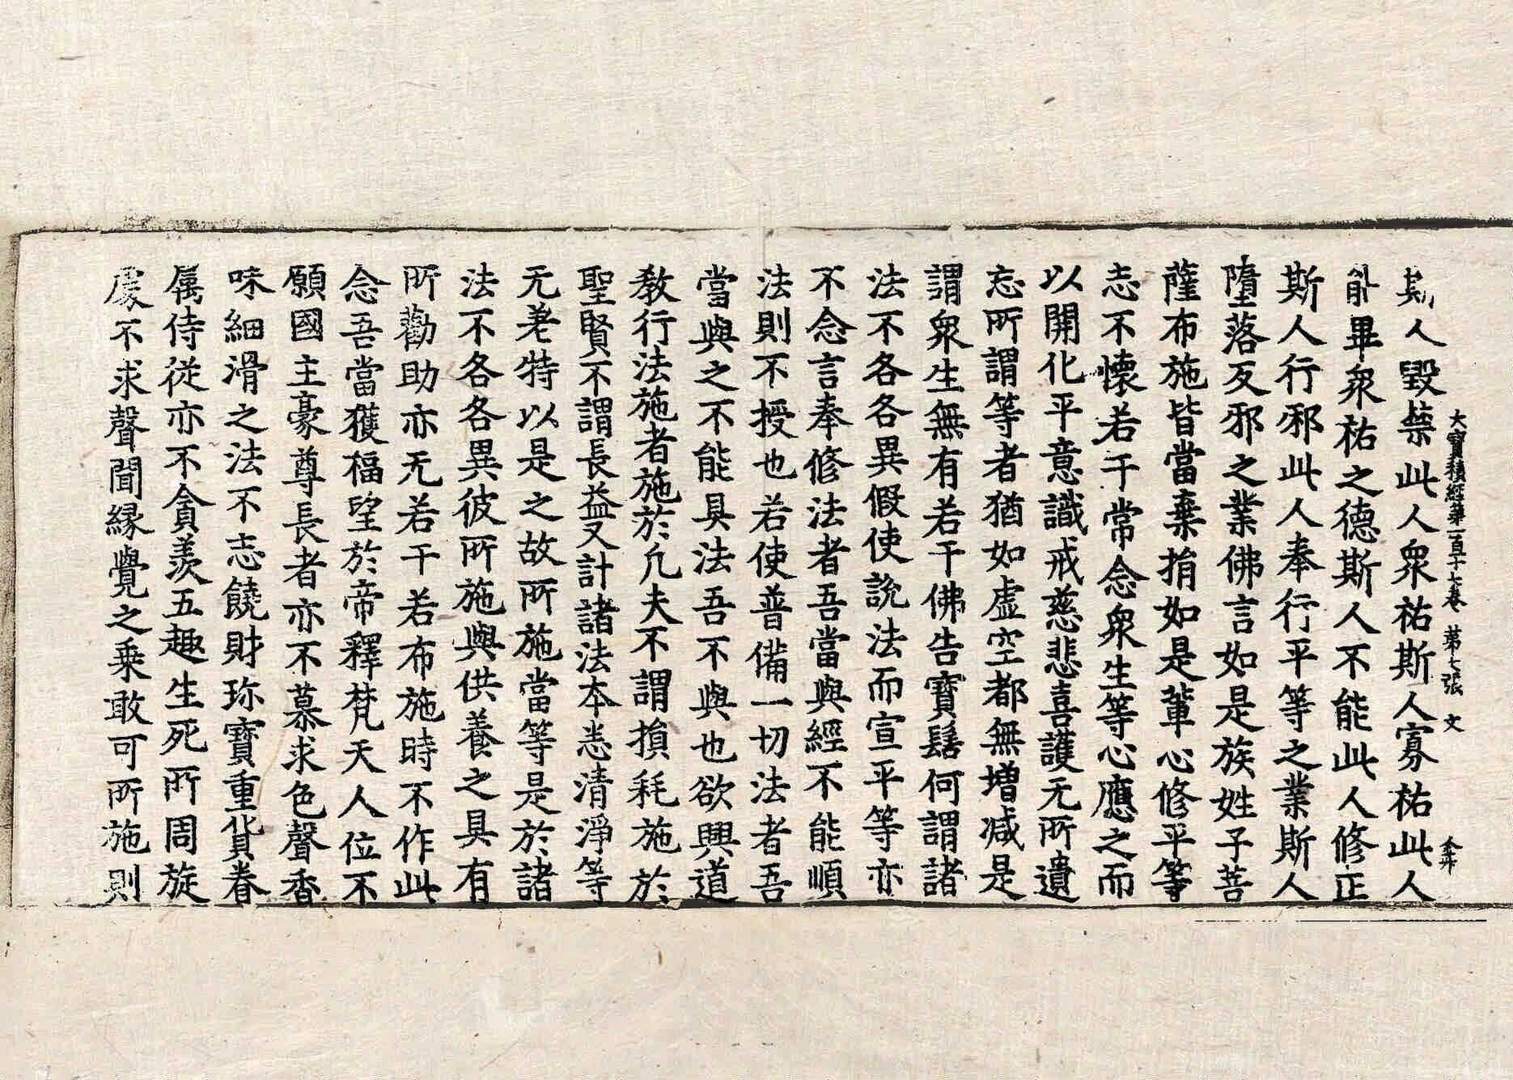 大寶積經第一百十七卷 第七張 文
斯人毀禁此人衆祐斯人寡祐此人
能畢衆祐之德斯人不能此人修正
斯人行邪此人奉行平等之業斯人
墮落反邪之業佛言如是族姓子菩
薩布施皆當棄捐如是輩心修平等
志不懷若干常念衆生等心應之而
以開化平意識戒慈悲喜護无所遺
忘所謂等者猶如虛空都無增减是
謂衆生無有若干佛告寶髻何謂諸
法不各各異假使說法而宣平等亦
不念言奉修法者吾當與經不能順
法則不授也若使普備一切法者吾
當與之不能具法吾不與也欲興道
教行法施者施於凡夫不謂損耗施於
聖賢不謂長益又計諸法本悉清淨等
无差特以是之故所施當等是於諸
法不各各異彼所施與供養之具有
所勸助亦无若干若布施時不作此
念吾當獲福望於帝釋梵天人位不
願國主豪尊長者亦不慕求色聲香
味細滑之法不志饒財珎寶重貨眷
属侍從亦不貪羡五趣生死所周旋
處不求聲聞縁覺之乘敢可所施則